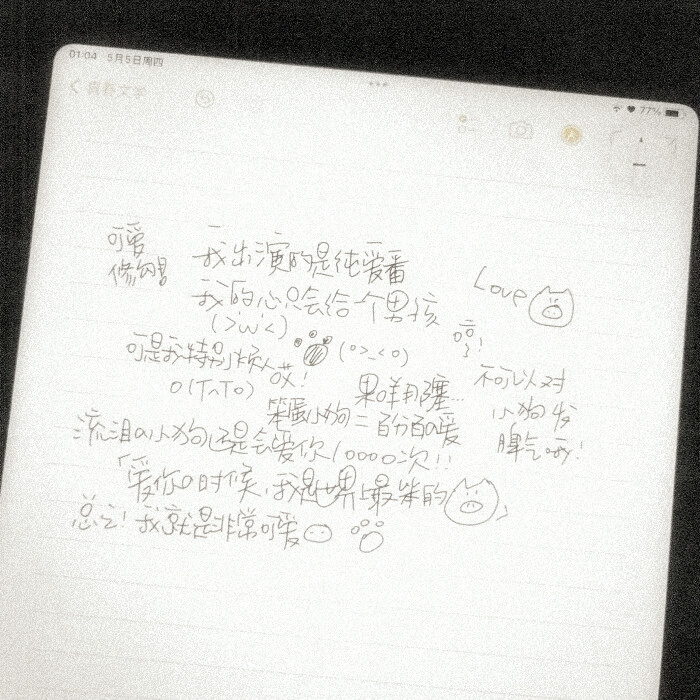 01:04 5月5日周四
77%
可爱
我出演的是纯爱番
Love
我的心只会给一个男孩
(>'w'<)
(o>_<o)
可是我特别烦人哎!
o(T^To)
不可以对
小狗发
脾气哦!
笨蛋小狗=百分百可爱
流泪の小狗还是会爱你10000次!!
爱你の时候,我是世界上最笨的
总之!我就是非常可爱